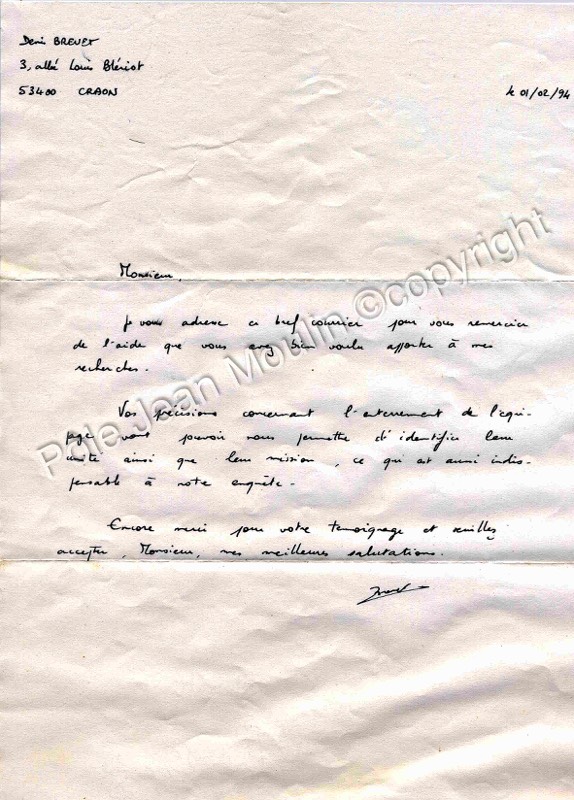 Denis BREUET
3, allée Louis Blériot
53400 CRAON
le 01/02/94
Monsieur,
Je vous adresse ce bref courrier pour vous remercier
de l'aide que vous avez bien voulu apporter à mes
recherches.
Vos précisions concernant l'enterrement de l'équi-
page vont pouvoir nous permettre d'identifier leur
unité ainsi que leur mission, ce qui est aussi indis-
pensable à notre enquête.
Encore merci pour votre témoignage et veuillez
accepter, Monsieur, mes meilleures salutations.
Pôle Jean Moulin ©copyright